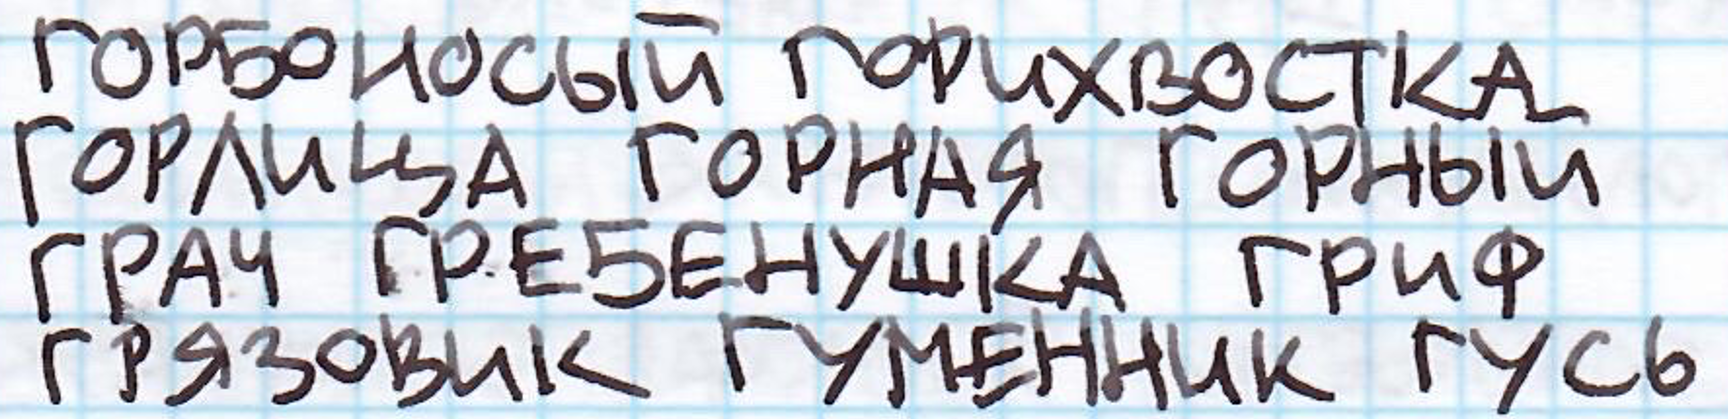 ГОРБОНОСЫЙ ГОРИХВОСТКА
ГОРЛИЦА ГОРНАЯ ГОРНЫИ
ГРАЧ ГРЕБЕНУШКА ГРИФ
ГРЯЗОВИК ГУМЕННИК ГУСЬ